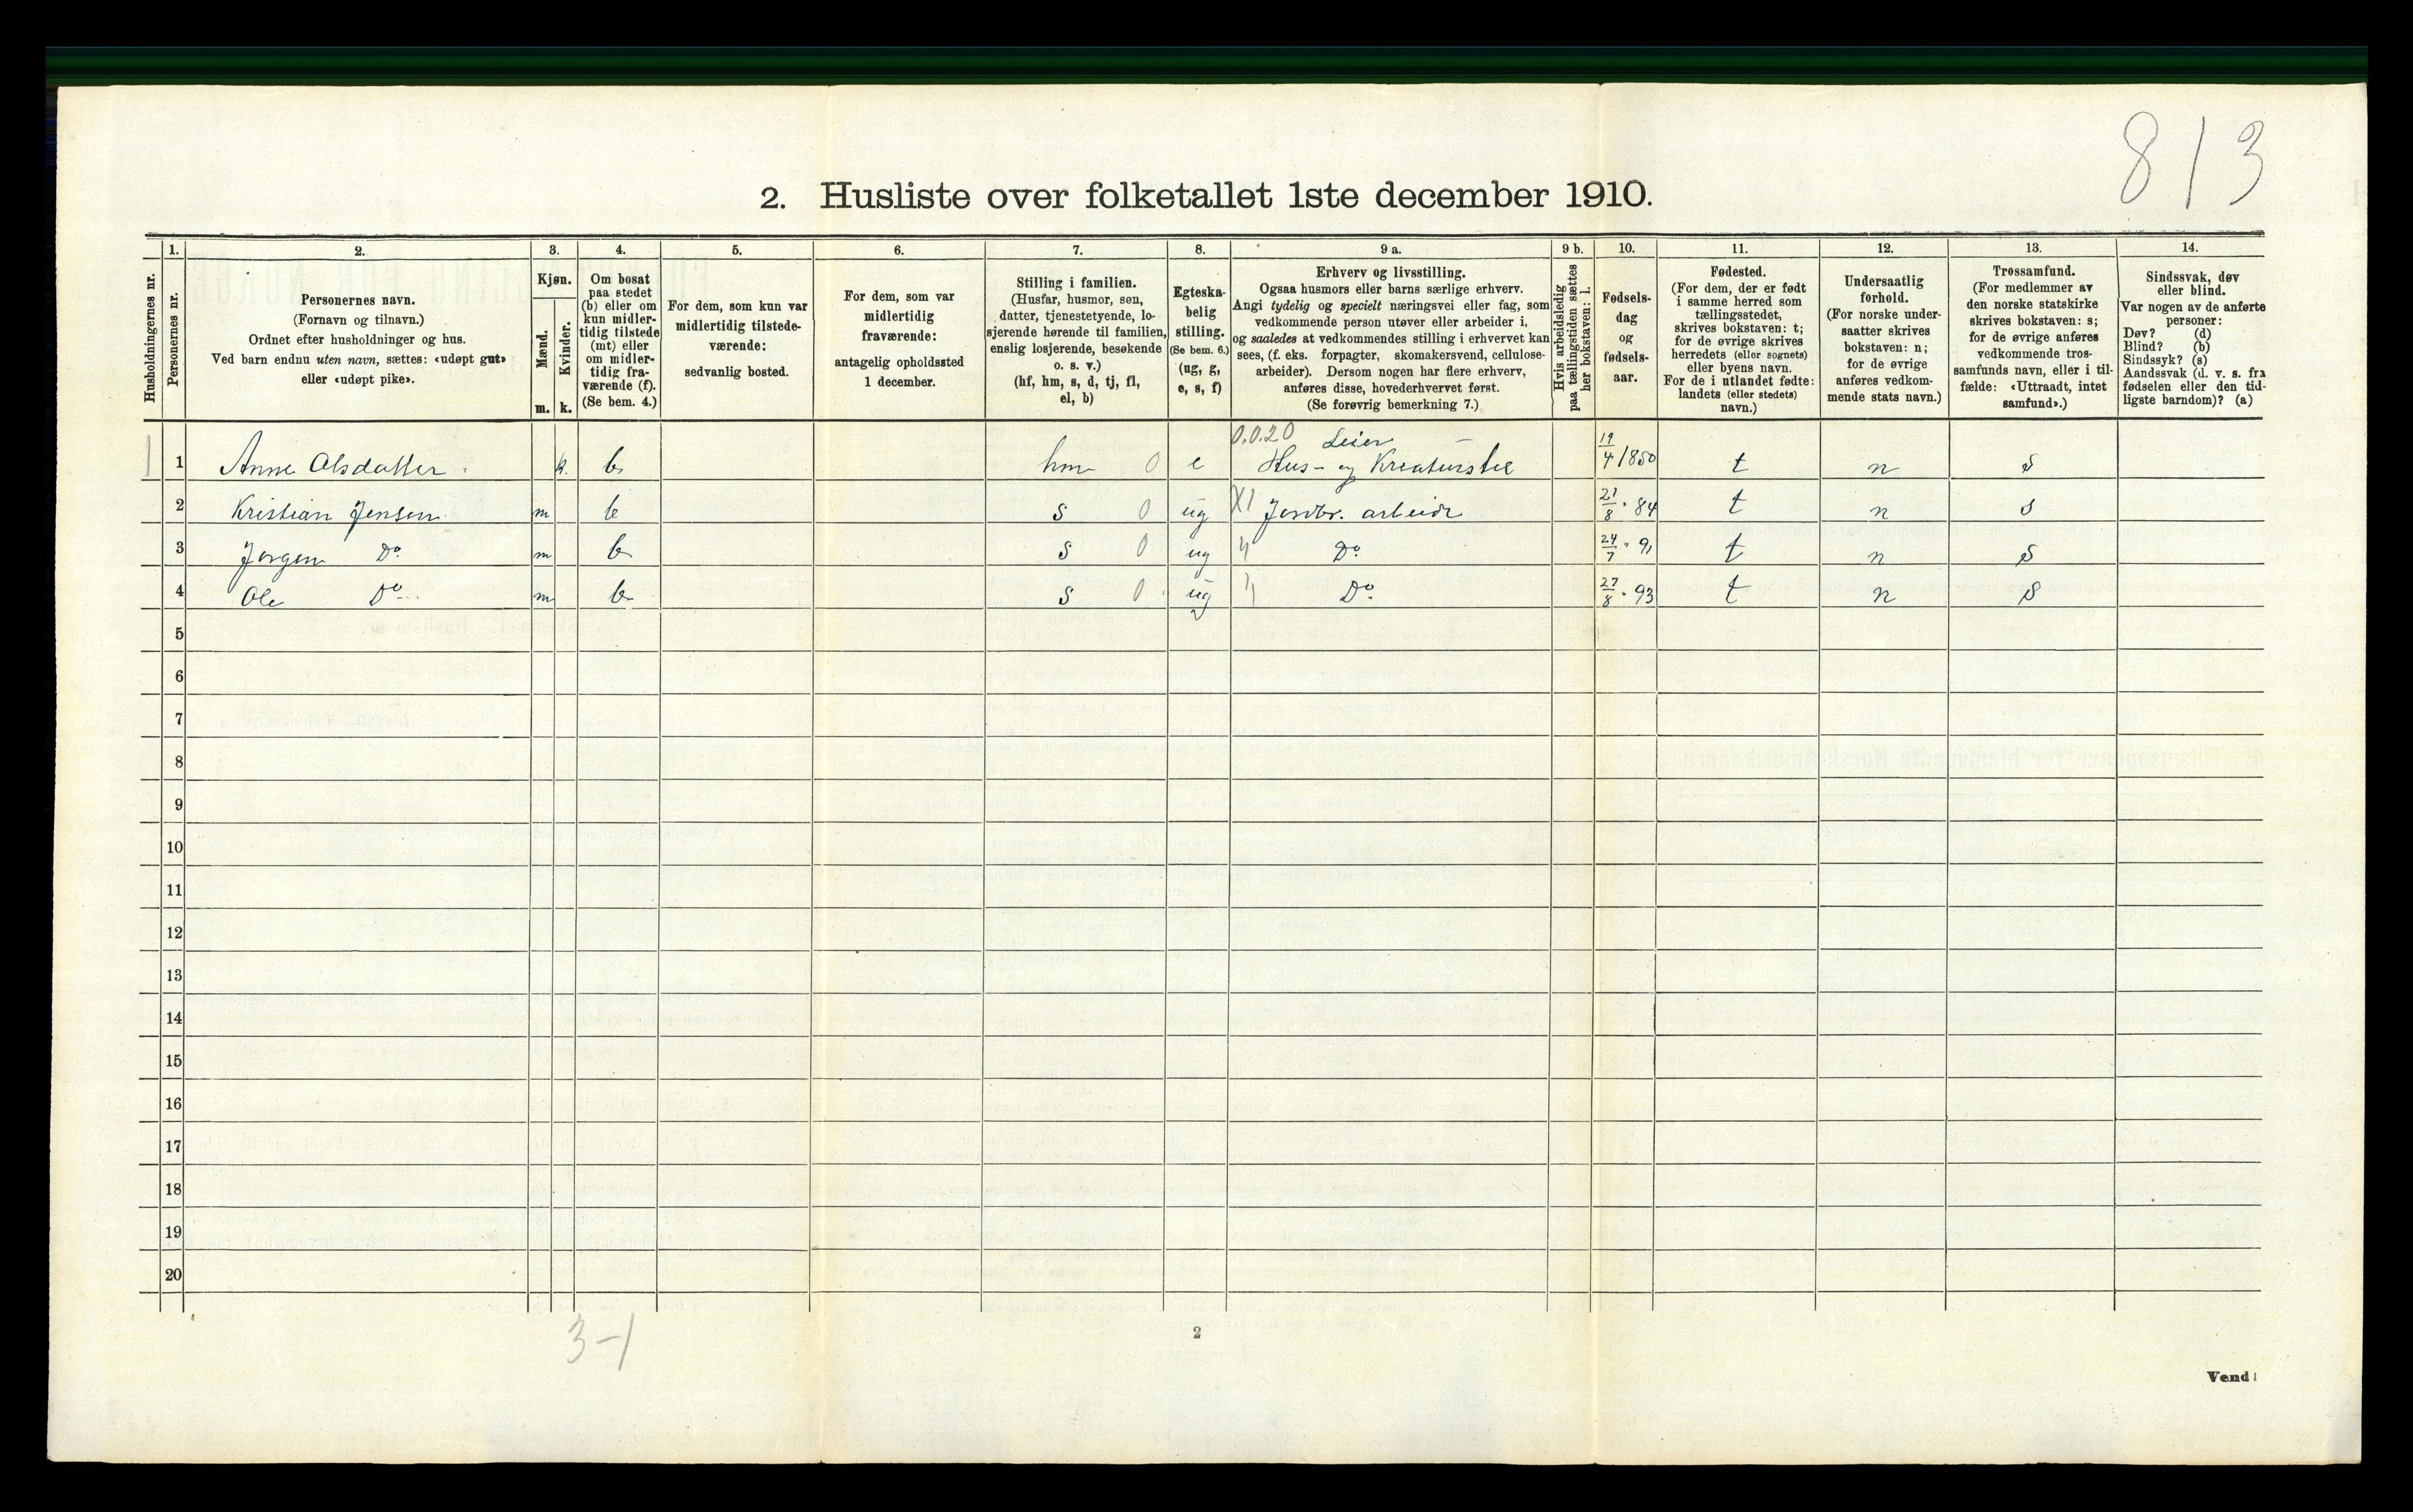 813
2. Husliste over folketallet 1ste december 1910.
Husholdningernes nr.
1.
Personernes nr.
2.
Personernes navn.
(Fornavn og tilnavn.)
Ordnet efter husholdninger og hus.
Ved barn endnu uten navn, sættes: «udøpt gut»
eller «udøpt pike».
3.
Kjøn.
Mænd.
m.
Kvinder.
k.
4.
Om bosat
paa stedet
(b) eller om
kun midler-
tidig tilstede
(mt) eller
om midler-
tidig fra-
værende (f).
(Se bem. 4.)
5.
For dem, som kun var
midlertidig tilstede-
værende:
sedvanlig bosted.
6.
For dem, som var
midlertidig
fraværende:
antagelig opholdssted
1 december.
7.
Stilling i familien.
(Husfar, husmor, søn,
datter, tjenestetyende, lo-
sjerende hørende til familien,
enslig losjerende, besøkende
o. s. v.)
(hf, hm, s, d, tj, fl,
el, b)
8.
Egteska-
belig
stilling.
(Se bem. 6.)
(ug, g,
e, s, f)
9 a.
Erhverv og livsstilling.
Ogsaa husmors eller barns særlige erhverv.
Angi tydelig og specielt næringsvei eller fag, som
vedkommende person utøver eller arbeider i,
og saaledes at vedkommendes stilling i erhvervet kan
sees, (f. eks. forpagter, skomakersvend, cellulose-
arbeider). Dersom nogen har flere erhverv,
anføres disse, hovederhvervet først.
(Se forøvrig bemerkning 7.)
9 b.
Hvis arbeidsledig
paa tællingstiden sættes
her bokstaven: l.
10.
Fødsels-
dag
og
fødsels-
aar.
11.
Fødested.
(For dem, der er født
i samme herred som
tællingsstedet,
skrives bokstaven: t;
for de øvrige skrives
herredets (eller sognets)
eller byens navn.
For de i utlandet fødte:
landets (eller stedets)
navn.)
12.
Undersaatlig
forhold.
(For norske under-
saatter skrives
bokstaven: n;
for de øvrige
anføres vedkom-
mende stats navn.)
13.
Trossamfund.
(For medlemmer av
den norske statskirke
skrives bokstaven: s;
for de øvrige anføres
vedkommende tros-
samfunds navn, eller i til-
fælde: «Uttraadt, intet
samfund».)
14.
Sindssvak, døv
eller blind.
Var nogen av de anførte
personer:
Døv? (d)
Blind? (b)
Sindssyk? (s)
Aandssvak (d. v. s. fra
fødselen eller den tid-
ligste barndom)? (a)
0.0.20 Leier
1 1 Anne Olsdatter k. b hm 0 e Hus- og Kreaturstel 19/4 1850 t n s
2 Kristian Jensen m b s 0 ug X1 Jordbr. arbeide 21/8 " 84 t n s
3 Jørgen Do m b s 0 ug " Do 24/7 " 91 t n s
4 Ole Do m b s 0 ug " Do 27/8 " 93 t n s
5
6
7
8
9
10
11
12
13
14
15
16
17
18
19
20
3-1
2
Vend!